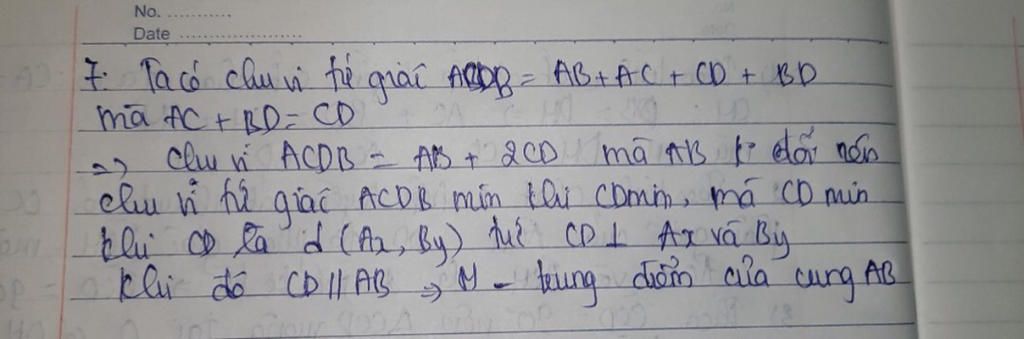 No. ...........
Date ......................
7. Ta có chu vi tứ giác ACDB = AB + AC + CD + BD
mà AC + BD = CD
=> chu vi ACDB = AB + 2CD mà AB k° đổi nên
chu vi tứ giác ACDB min khi CDmin, mà CD min
khi CD là d (Ax, By) tức CD ⊥ Ax và By
Khi đó CD // AB => M - trung điểm của cung AB